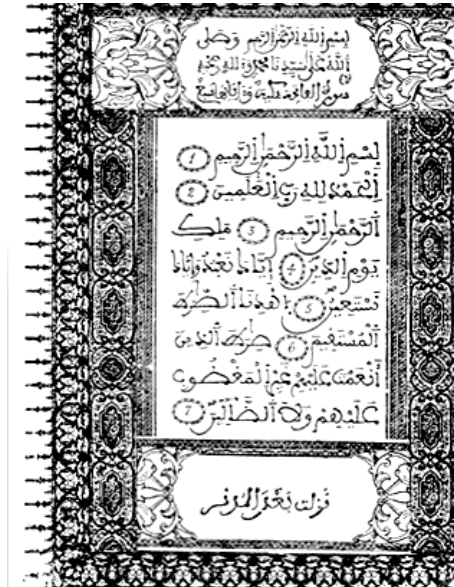 بسم الله الرحمن الرحيم وصلى
الله على سيدنا محمد وءاله وصحبه
سورة الفاتحة مكية وءاياتها سبع
بسم الله الرحمن الرحيم 1
الحمد لله رب العلمين 2
الرحمن الرحيم 3 ملك
يوم الدين 4 إياك نعبد وإياك
نستعين 5 اهدنا الصراط
المستقيم 6 صراط الذين
أنعمت عليهم غير المغضوب
عليهم ولا الضالين 7
نزلت بعد المدثر